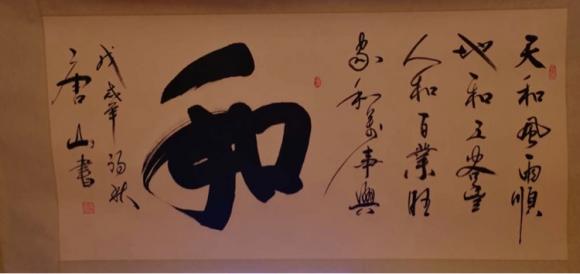 天和風雨順
地和五谷豐
人和百業旺
家和萬事興
和
戊戌年初秋
唐山書